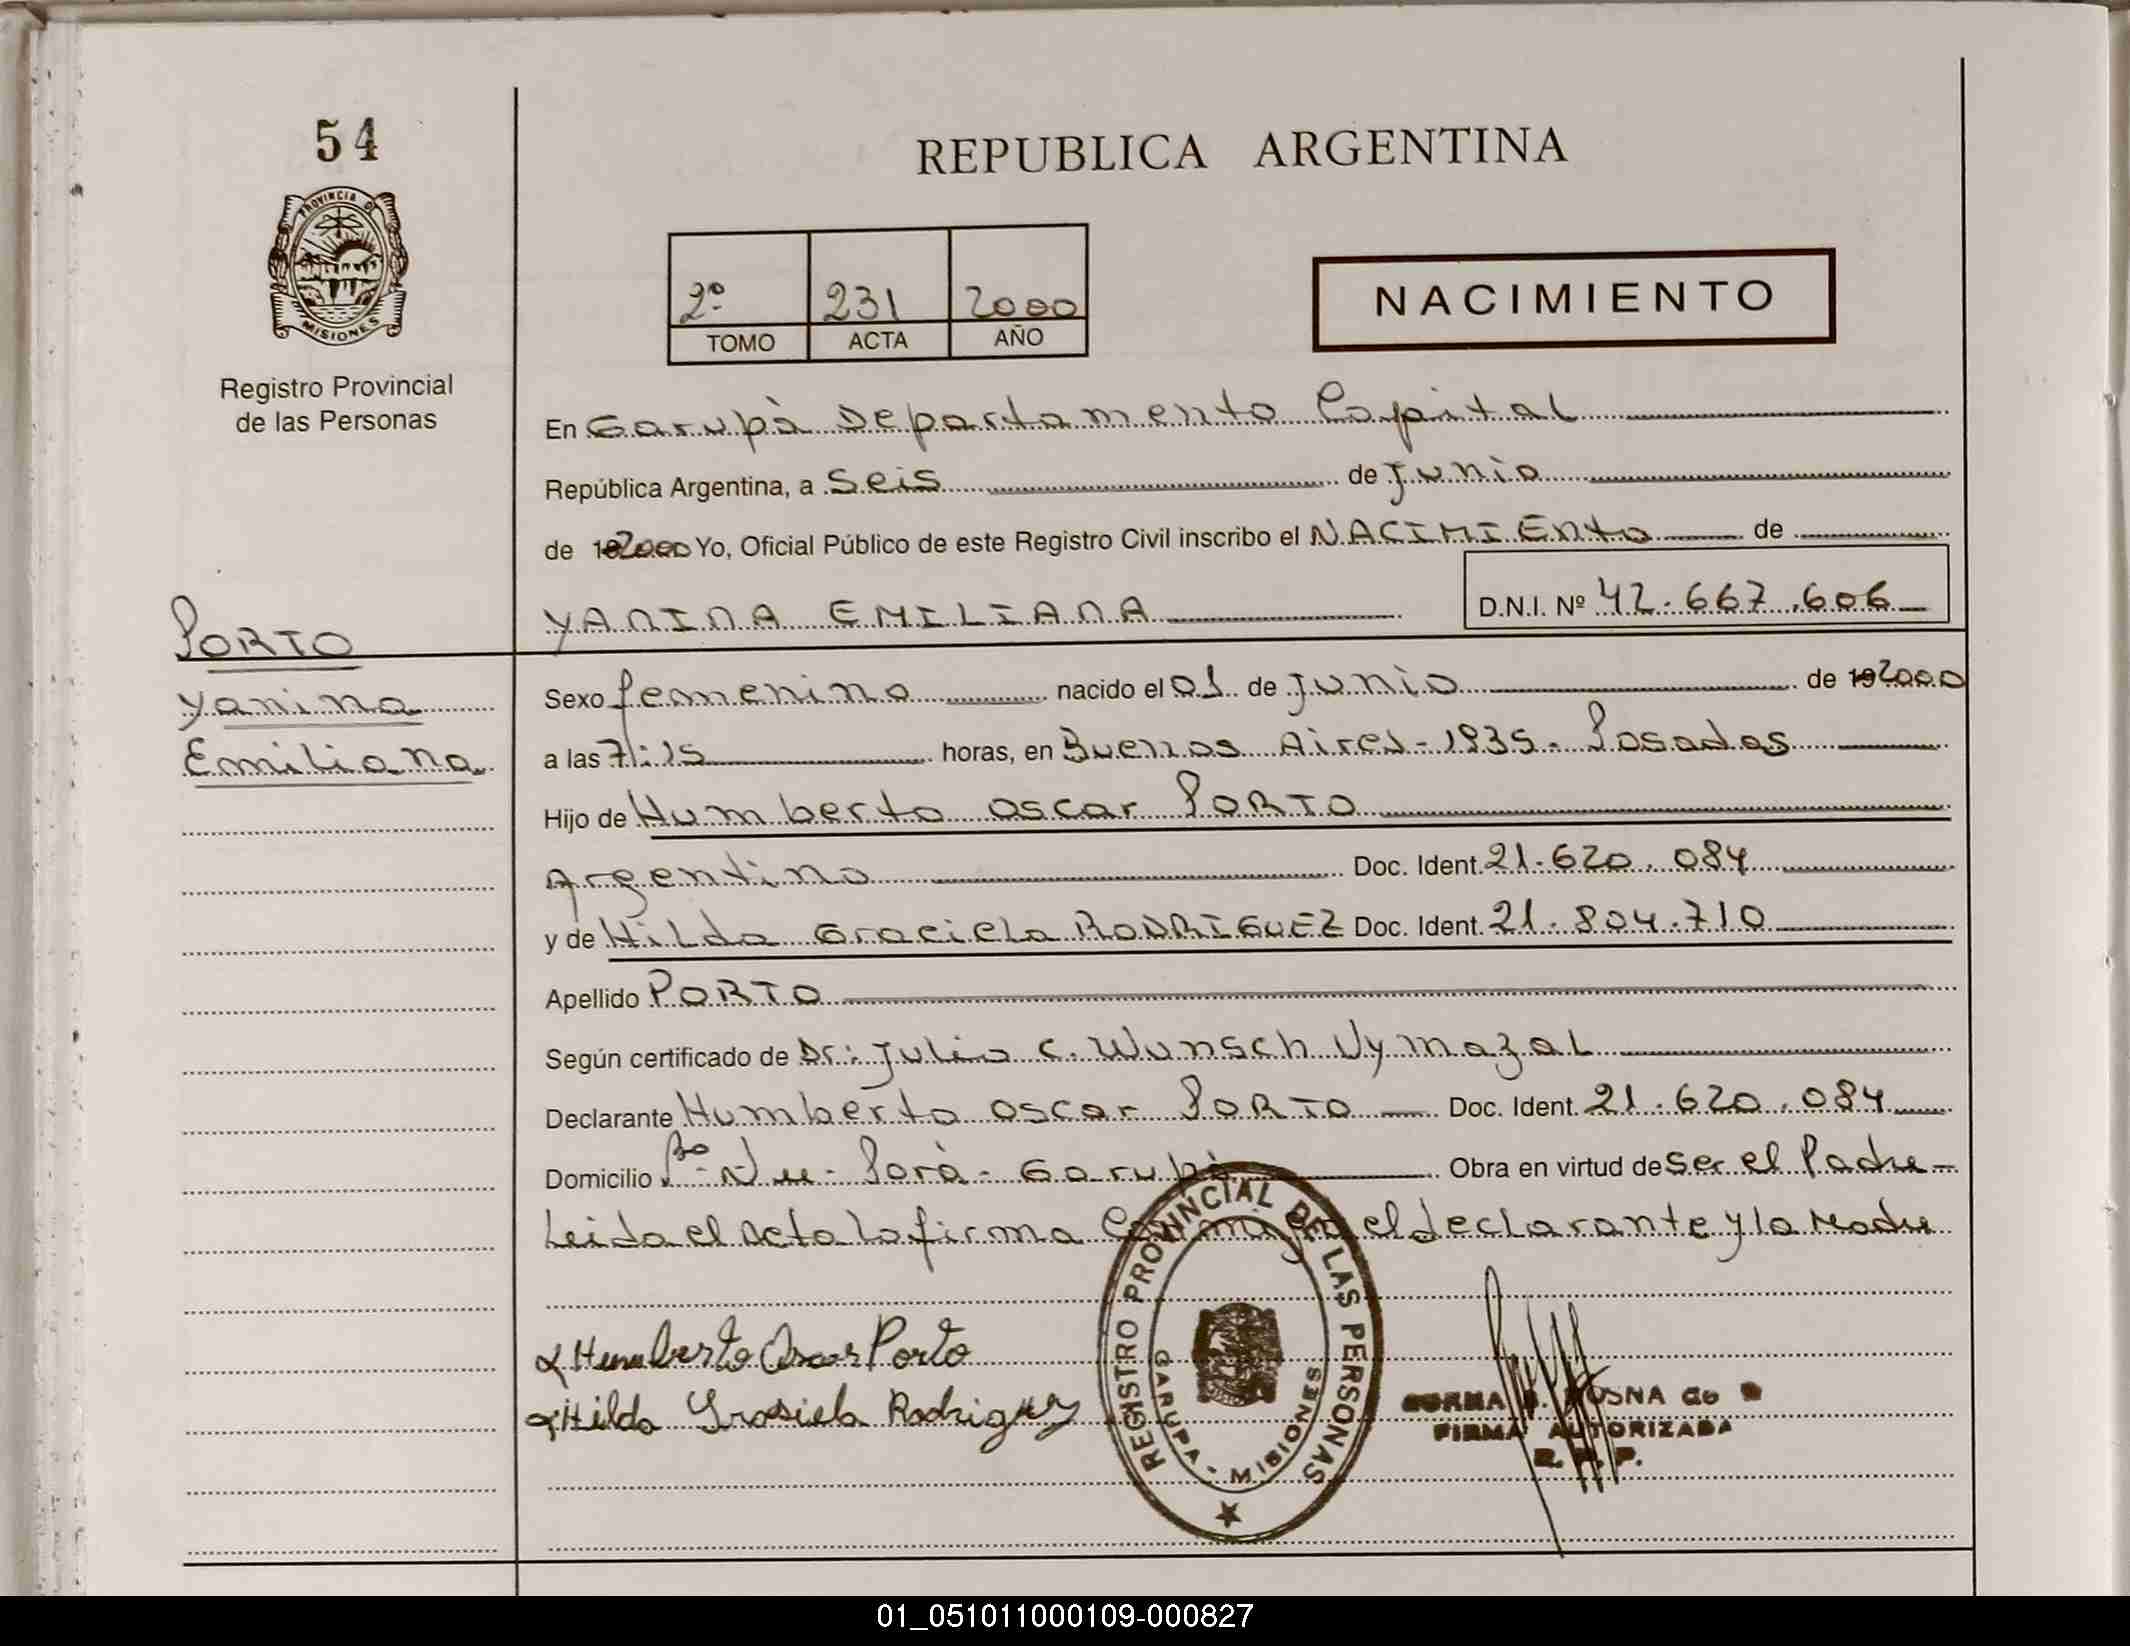 54
REPUBLICA ARGENTINA
PROVINCIA D
MISIONES
2º 231 2000
TOMO ACTA AÑO
NACIMIENTO
Registro Provincial
de las Personas
En Garupà Departamento Capital
República Argentina, a Seis de Junio
de 192000 Yo, Oficial Público de este Registro Civil inscribo el NACIMIENto de
YANINA EMILIANA D.N.I. Nº 42.667.606
PORTO
Yanina
Emiliana
Sexo femenino nacido el 01 de Junio de 192000
a las 7:15 horas, en Buenos Aires-1935-Posadas
Hijo de Humberto Oscar PORTO
Argentino Doc. Ident. 21.620.084
y de Hilda Graciela RODRIGUEZ Doc. Ident. 21.804.710
Apellido PORTO
Según certificado de Dr: Julio C. Wunsch Vymazal
Declarante Humberto Oscar PORTO Doc. Ident. 21.620.084
Domicilio Bº-Ñu-Porà-Garupà Obra en virtud de Ser el Padre
Leida el Acta la firma Conmigo el declarante y la Madre
Humberto Oscar Porto
Hilda Grasiela Rodriguez
REGISTRO PROVINCIAL DE LAS PERSONAS
GARUPA - MISIONES
FIRMA AUTORIZADA
R. P. P.
01_051011000109-000827